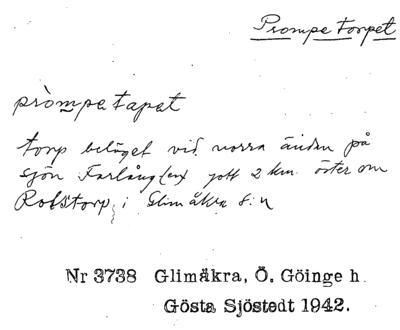 Prompetorpet
pròmpetapet
torp beläget vid norra änden på
sjön Farlång(en) gott 2 km. öster om
Robstorp, i Glimåkra s:n
Nr 3738 Glimåkra, Ö. Göinge h.
Gösta Sjöstedt 1942.